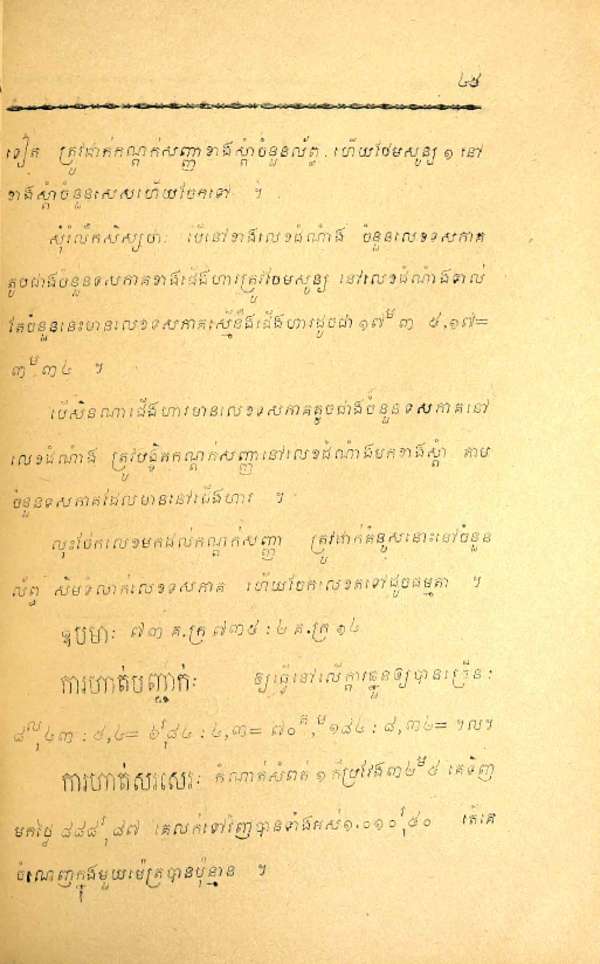 ៤៥
ទៀត ត្រូវដាក់កណ្ដក់សញ្ញាខាងស្ដាំចំនួនល័ព្ធ. ហើយថែមសូន្យ ១ នៅ
ខាងស្ដាំចំនួនសេសហើយចែកទៅ ។
សុំរំលឹកសិស្សថាៈ បើនៅខាងលេខដំណាំង ចំនួនលេខទសភាគ
តូចជាងចំនួនទសភាគខាងជើងហារត្រូវថែមសូន្យ នៅលេខដំណាំងទាល់
តែចំនួននេះមានលេខទសភាគស្មើនឹងជើងហារដូចជា ១៧ម ៣ ៥,១៧=
៣ម ៣៤ ។
បើសិនណាជើងហារមានលេខទសភាគតូចជាងចំនួនទសភាគនៅ
លេខដំណាំង ត្រូវបន្ថិតកណ្ដក់សញ្ញានៅលេខដំណាំងមកខាងស្ដាំ តាម
ចំនួនទសភាគដែលមាននៅជើងហារ ។
លុះចែកលេខមកដល់កណ្ដក់សញ្ញា ត្រូវដាក់គំនូសនោះនៅចំនួន
ល័ព្ធ សឹមទំលាក់លេខទសភាគ ហើយចែកលេខតទៅដូចធម្មតា ។
ឧបមាៈ ៧៣ គ.ក្រ ៧៣៥ : ៤ គ.ក្រ ១៤
ការហាត់បញ្ជាក់ៈ ឲ្យធ្វើនៅលើក្ដារឆ្នួនឲ្យបានច្រើនៈ
៨ល,៤៣ : ៥,៤= ៦រ,៨៤ : ៤,៣= ៧០គ,ម ១៨៤ : ៨,៣៤= ។ល។
ការហាត់សរសេរៈ កំណាត់សំពត់ ១ ក៏ប្រវែង៣៤ម ៥ គេទិញ
មកថ្លៃ ៨៨៨រ,៨៧ គេលក់ទៅវិញបានទាំងអស់១.០១០រ,៥០ តើគេ
ចំណេញក្នុងមួយម៉ែត្របានប៉ុន្មាន ។